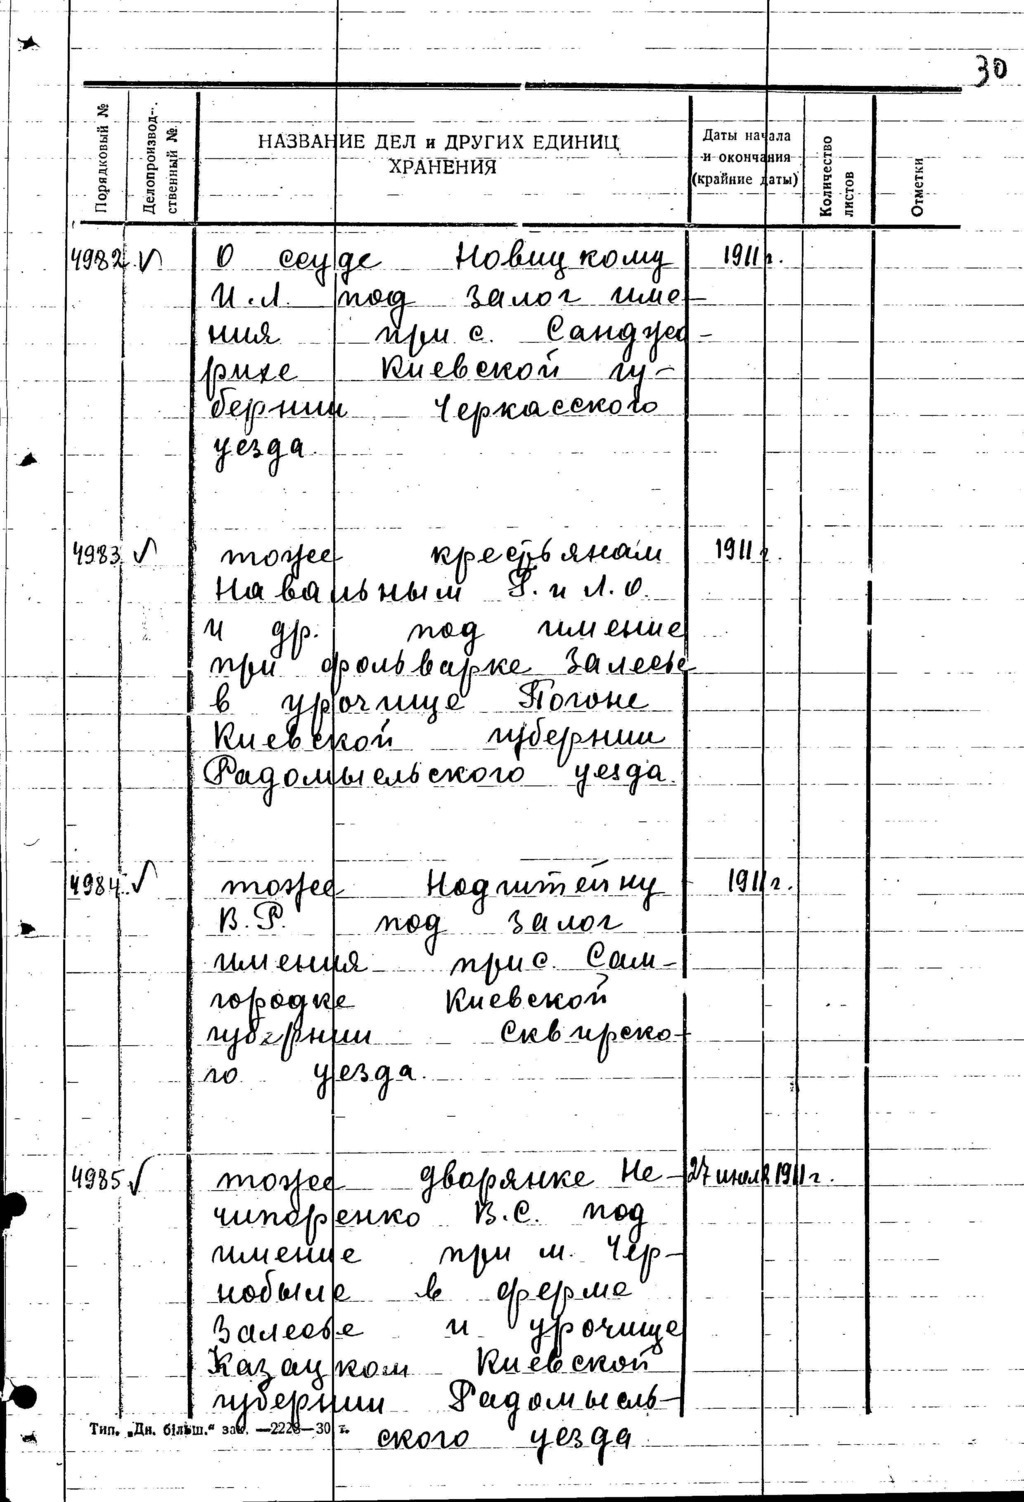 30
Порядковый №
Делопроизвод-
ственный №.
НАЗВАНИЕ ДЕЛ и ДРУГИХ ЕДИНИЦ
ХРАНЕНИЯ
Даты начала
и окончания
(крайние даты)
Количество
листов
Отметки
4982 О ссуде Новицкому 1911 г.
И.Л. под залог име-
ния при с. Сандуе-
рихе Киевской гу-
бернии Черкасского
уезда.
4983 тоже крестьянам 1911 г.
Навальным Г. и Л.О.
и др. под имение
при фольварке Залесье
в урочище Погоне
Киевской губернии
Радомысельского уезда.
4984 тоже Надштейну 1911 г.
В.Р. под залог
имения при с. Сам-
городке Киевской
губернии Сквирско-
го уезда.
4985 тоже дворянке Не- 27 июля 1911 г.
чипоренко В.С. под
имение при м. Чер-
нобыле в ферме
Залесье и урочище
Казацком Киевской
губернии Радомысль-
ского уезда
Тип. „Дн. більш.“ зак. —2228—30 г.